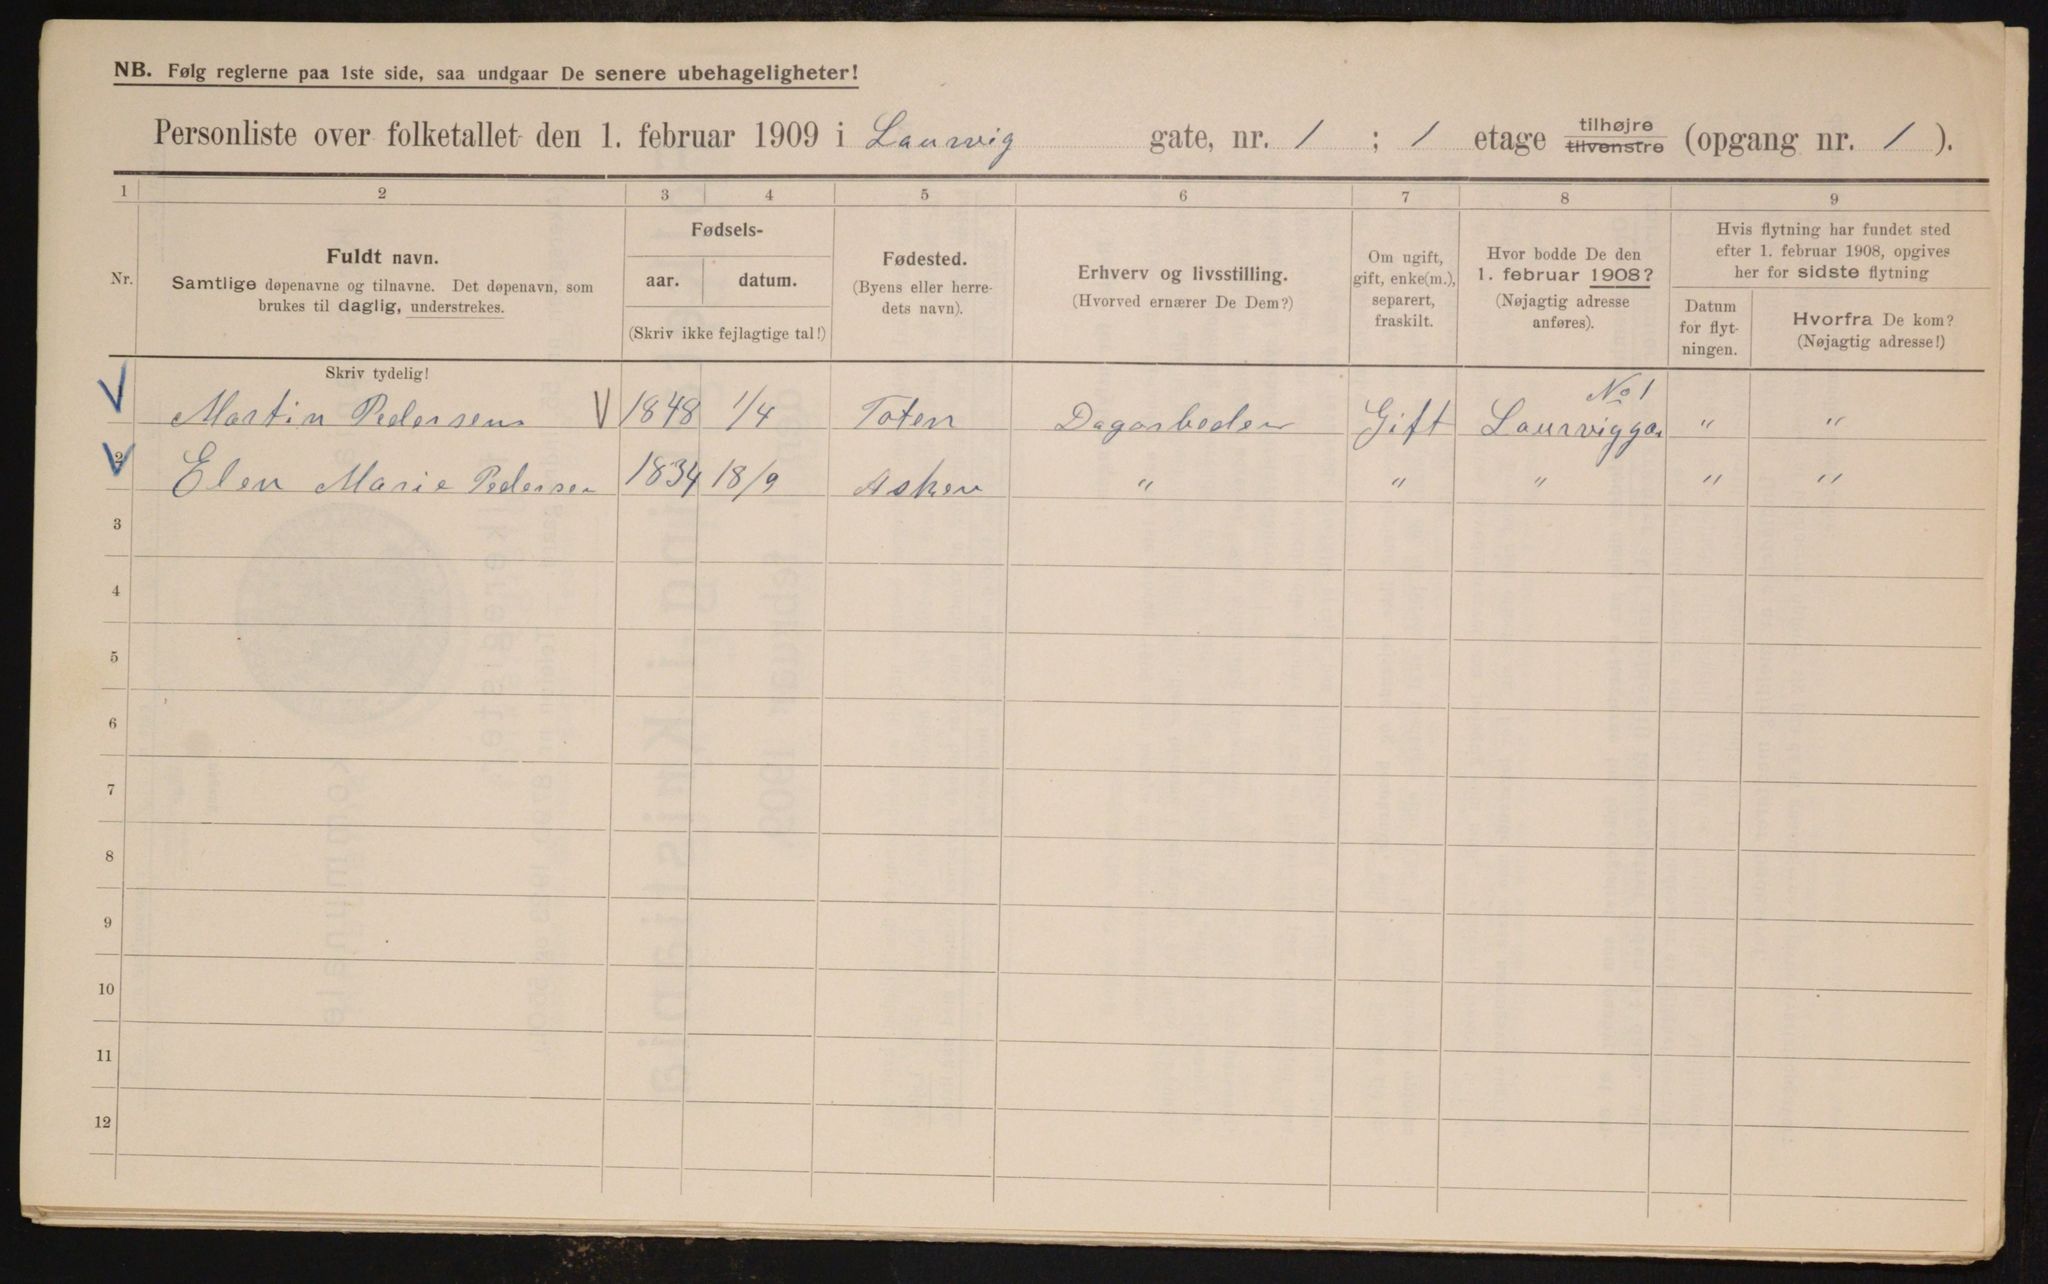 NB. Følg reglerne paa 1ste side, saa undgaar De senere ubehageligheter!
Personliste over folketallet den 1. februar 1909 i Laurvig gate, nr. 1 ; 1 etage tilhøjre tilvenstre (opgang nr. 1 ).
1 2 3 4 5 6 7 8 9
Nr.
Fuldt navn.
Samtlige døpenavne og tilnavne. Det døpenavn, som
brukes til daglig, understrekes.
Fødsels-
aar. datum.
(Skriv ikke fejlagtige tal!)
Fødested.
(Byens eller herre-
dets navn).
Erhverv og livsstilling.
(Hvorved ernærer De Dem?)
Om ugift,
gift, enke(m.),
separert,
fraskilt.
Hvor bodde De den
1. februar 1908?
(Nøjagtig adresse
anføres).
Hvis flytning har fundet sted
efter 1. februar 1908, opgives
her for sidste flytning
Datum
for flyt-
ningen.
Hvorfra De kom?
(Nøjagtig adresse!)
Skriv tydelig!
No 1
Martin Pedersen V 1848 1/4 Toten Dagarbeder Gift Laurviggar " "
2 Elen Marie Pedersen 1834 18/9 Asker " " " " "
3
4
5
6
7
8
9
10
11
12